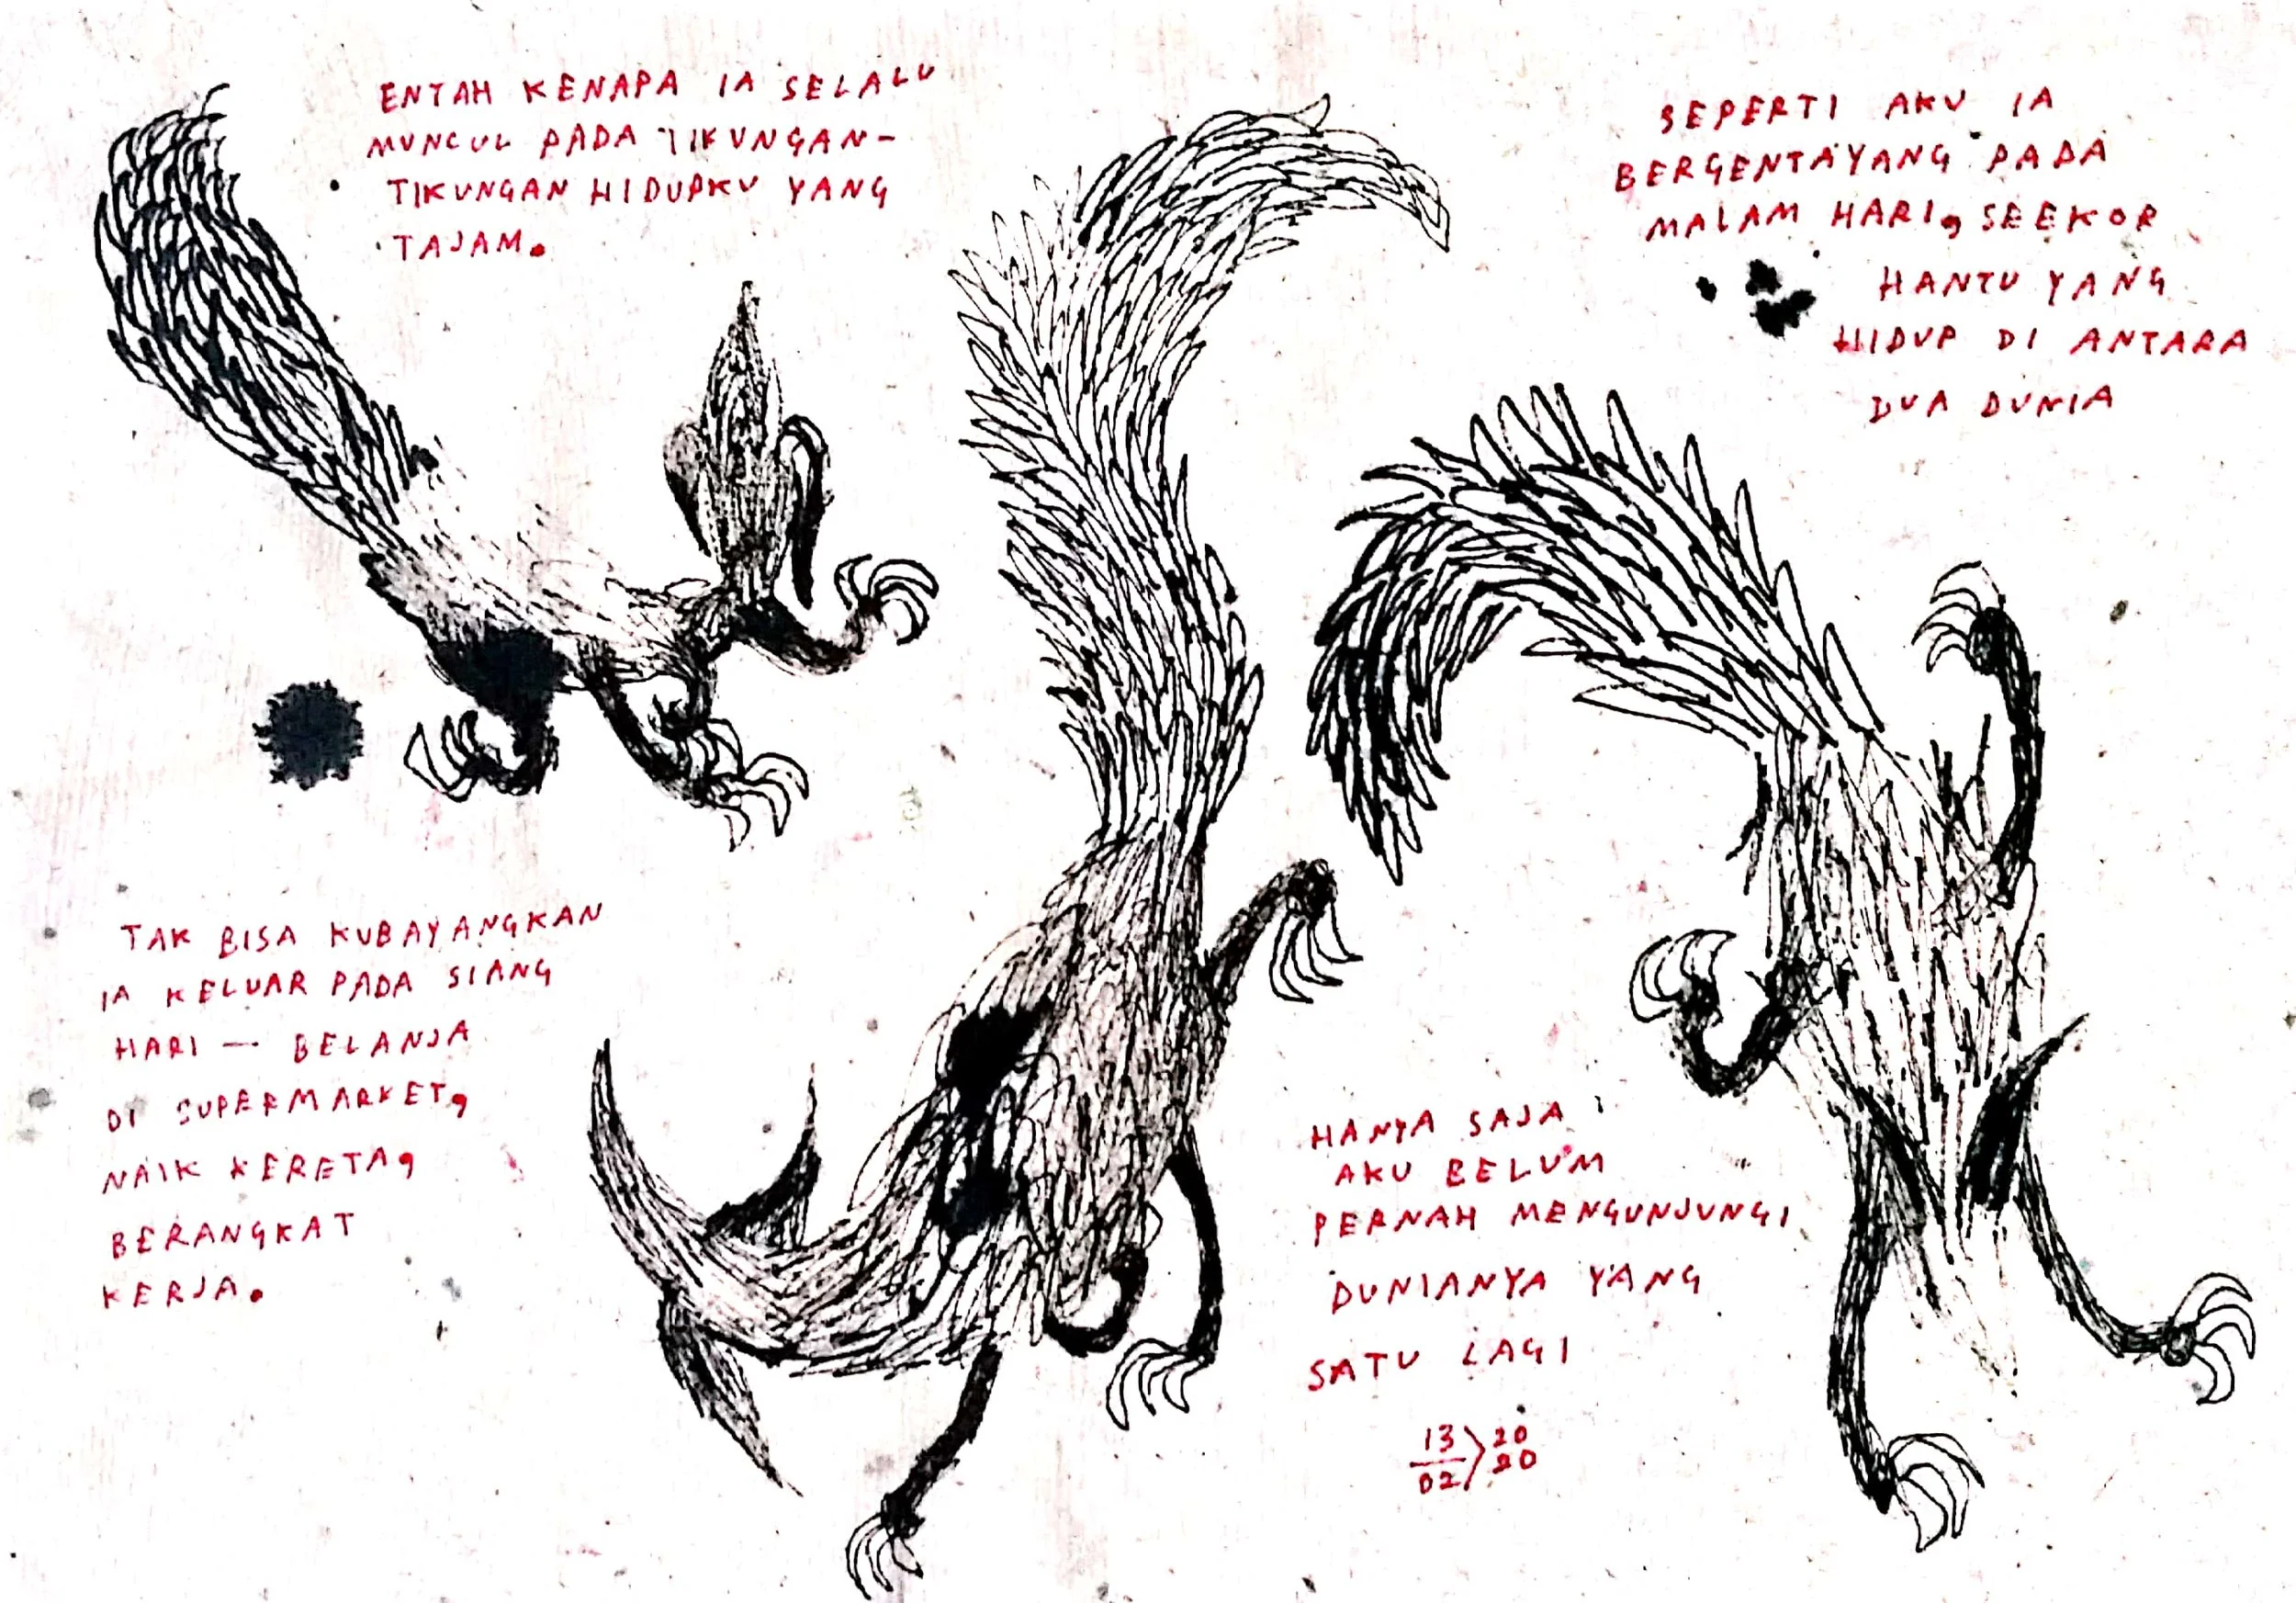 ENTAH KENAPA IA SELALU
MUNCUL PADA TIKUNGAN-
TIKUNGAN HIDUPKU YANG
TAJAM.
SEPERTI AKU IA
BERGENTAYANG PADA
MALAM HARI, SEEKOR
HANTU YANG
HIDUP DI ANTARA
DUA DUNIA
TAK BISA KUBAYANGKAN
IA KELUAR PADA SIANG
HARI — BELANJA
DI SUPERMARKET,
NAIK KERETA,
BERANGKAT
KERJA.
HANYA SAJA
AKU BELUM
PERNAH MENGUNJUNGI
DUNIANYA YANG
SATU LAGI
13 20
02 20